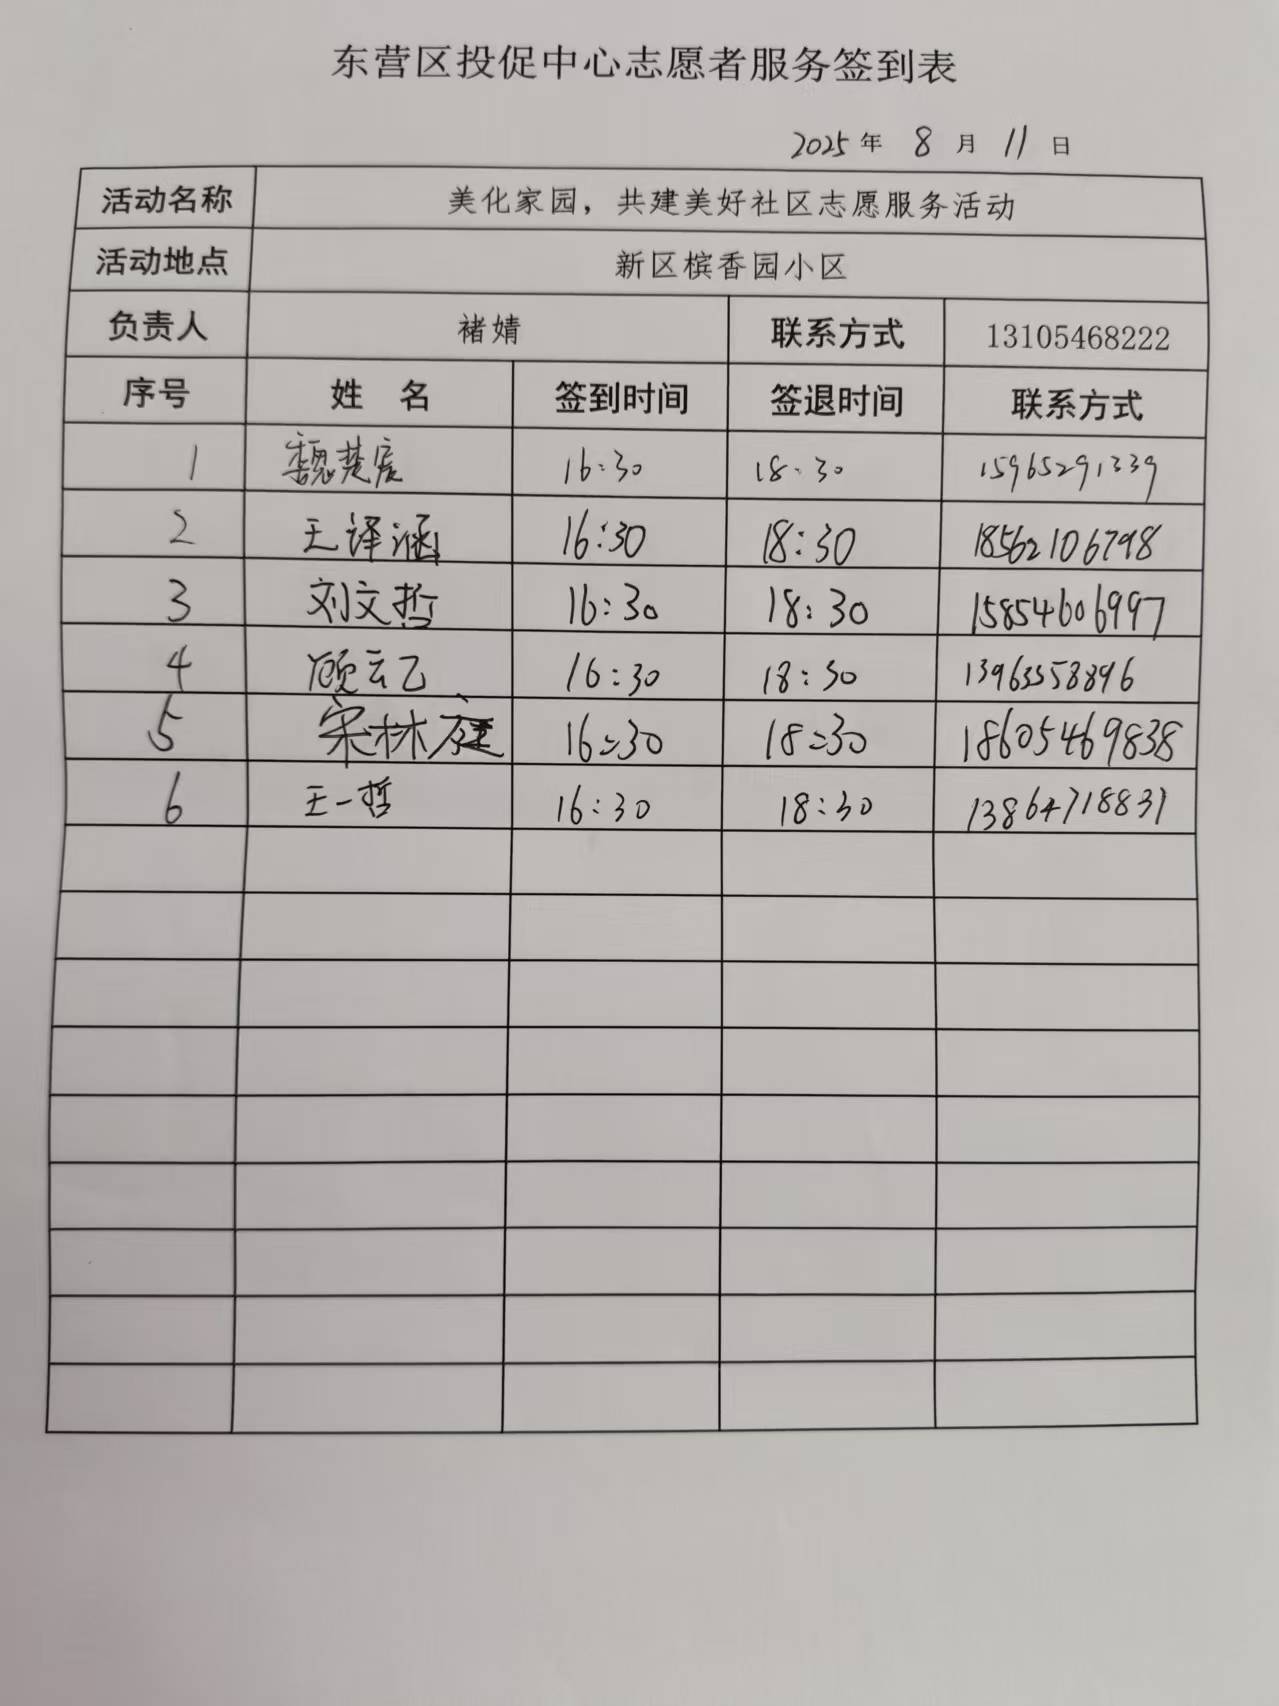 东营区投促中心志愿者服务签到表
2025年 8月 11日
活动名称 美化家园，共建美好社区志愿服务活动
活动地点 新区槟香园小区
负责人 褚婧 联系方式 13105468222
序号 姓 名 签到时间 签退时间 联系方式
1 魏楚宸 16:30 18:30 15965291339
2 王译涵 16:30 18:30 18562106798
3 刘文哲 16:30 18:30 15854606997
4 顾云乙 16:30 18:30 13963558896
5 宋林庭 16:30 18:30 18605469838
6 王一哲 16:30 18:30 13864718831